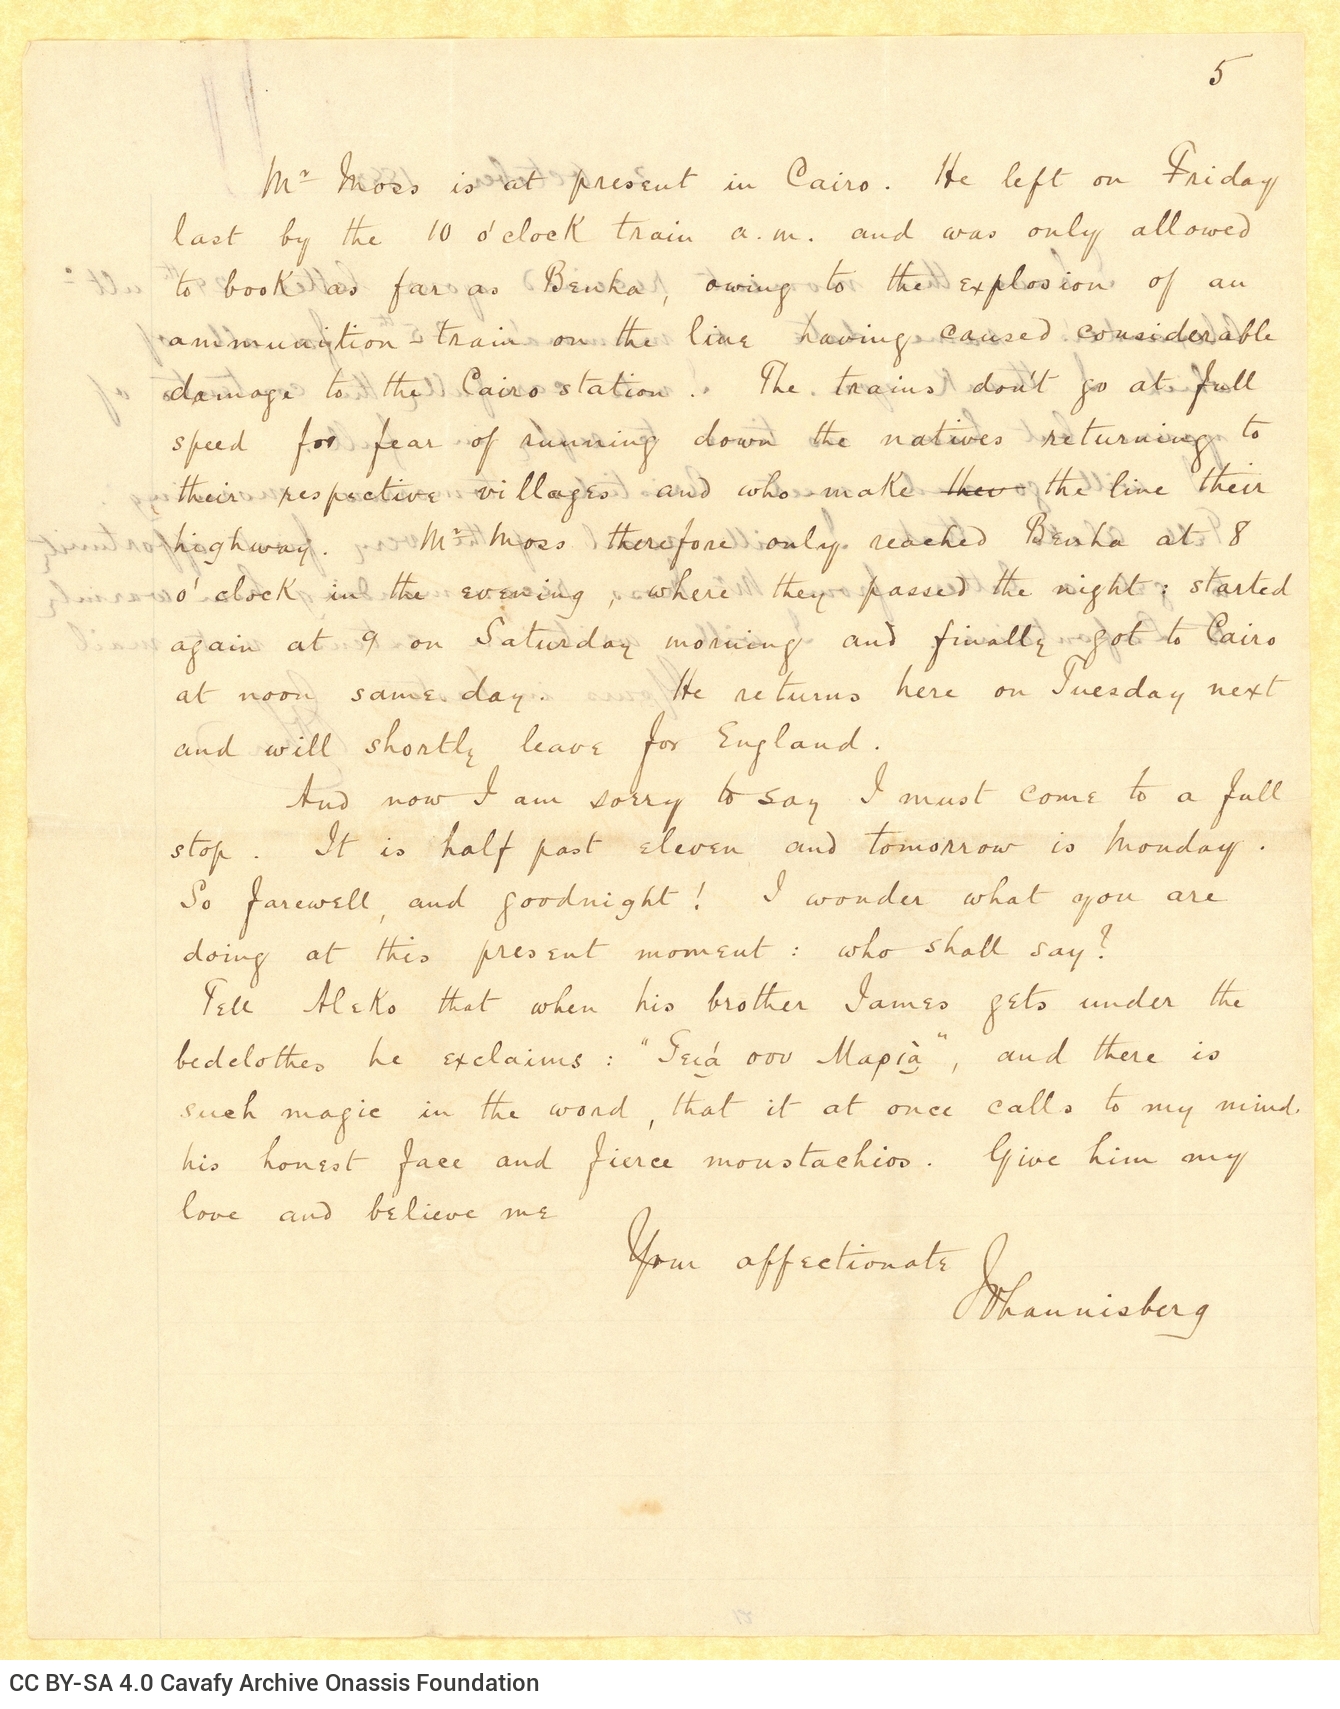 5
Mr Moss is at present in Cairo. He left on Friday
last by the 10 o'clock train a.m. and was only allowed
to book as far as Benha, owing to the explosion of an
ammunition-train on the line having caused considerable
damage to the Cairo station. The trains don't go at full
speed for fear of running down the natives returning to
their respective villages and who make the line their
highway. Mr Moss therefore only reached Benha at 8
o'clock in the evening, where they passed the night; started
again at 9 on Saturday morning and finally got to Cairo
at noon same day. He returns here on Tuesday next
and will shortly leave for England.
And now I am sorry to say I must come to a full
stop. It is half past eleven and tomorrow is Monday.
So farewell, and goodnight! I wonder what you are
doing at this present moment: who shall say?
Tell Aleko that when his brother James gets under the
bedclothes he exclaims: "Γειά σου Μαριά", and there is
such magic in the word, that it at once calls to my mind
his honest face and fierce moustachios. Give him my
love and believe me
Your affectionate
Johannisberg
CC BY-SA 4.0 Cavafy Archive Onassis Foundation